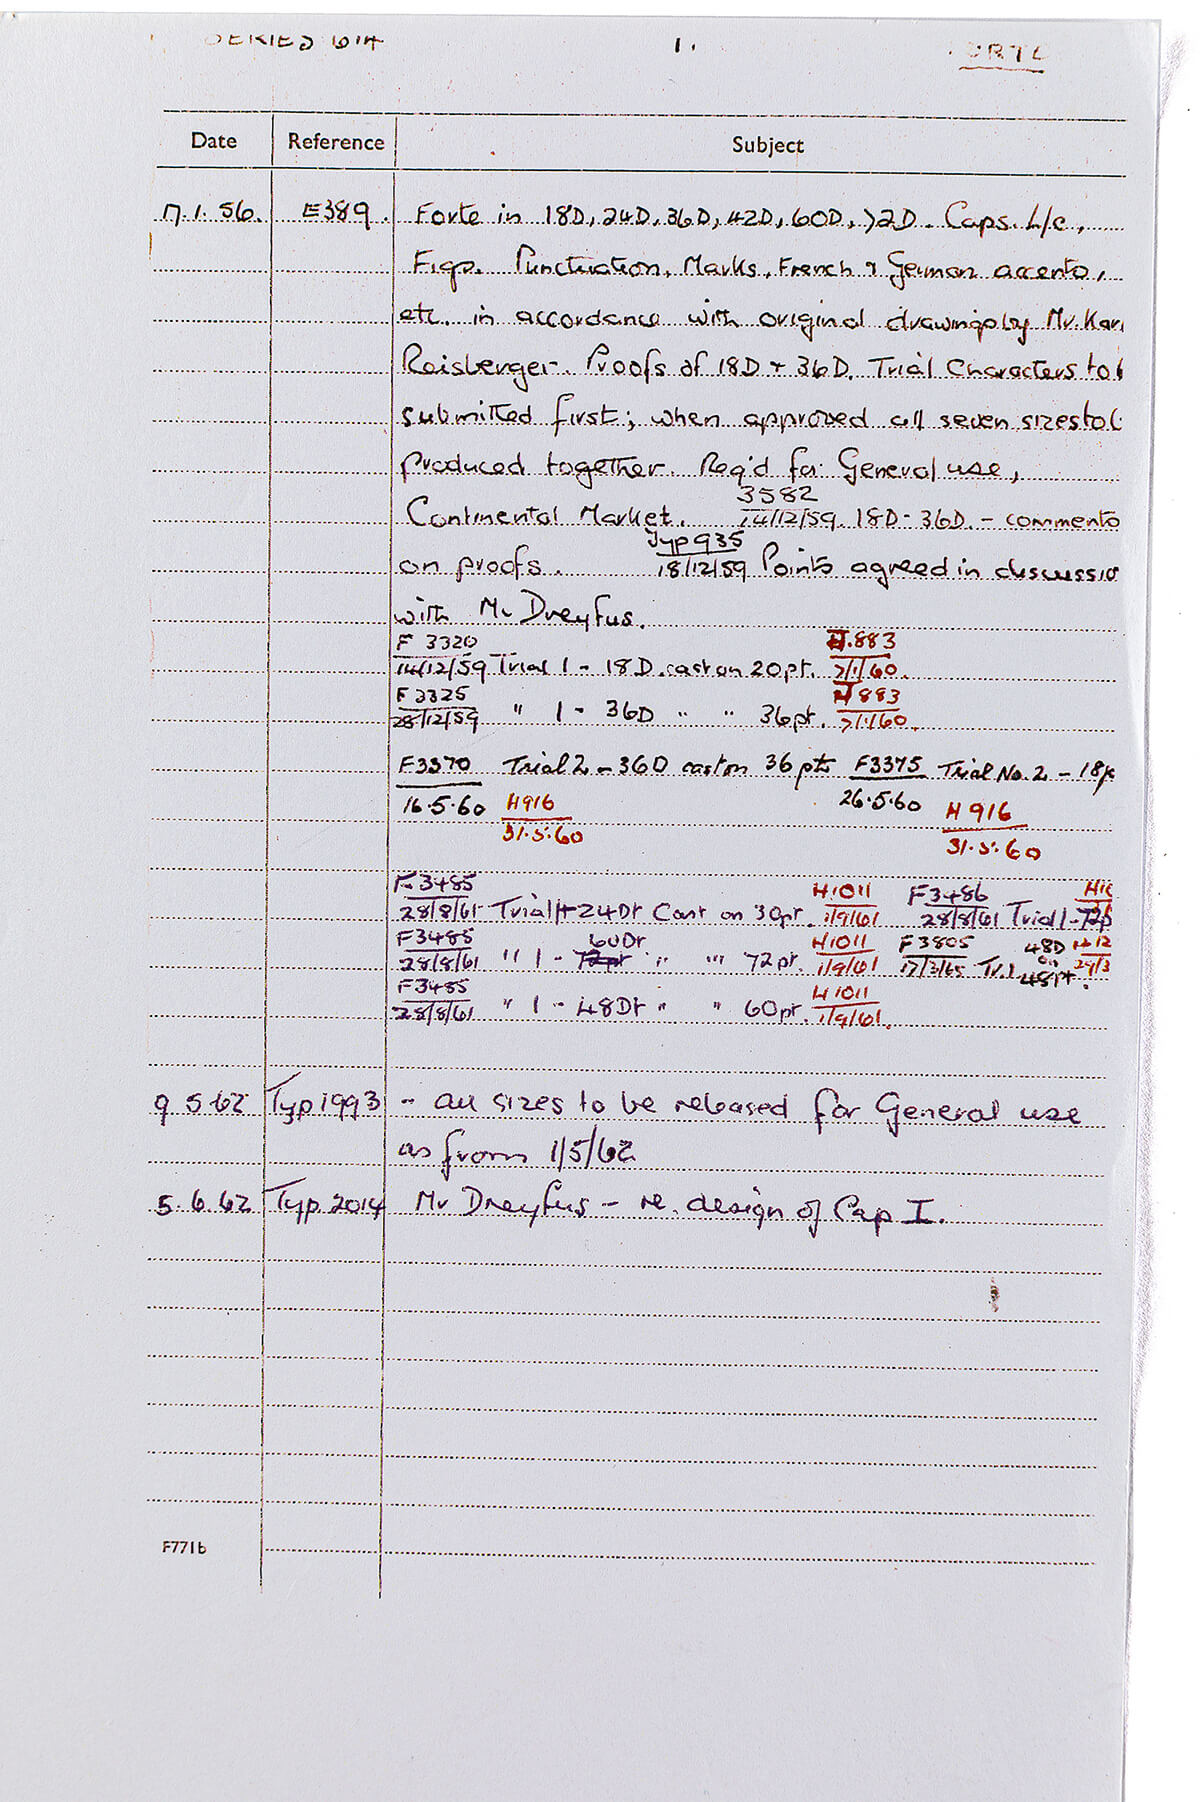 SERIES 1.
Date Reference Subject
17.1.56. E389. Forte in 18D, 24D, 36D, 42D, 60D, 72D. Caps. L/c,
Figs. Punctuation, Marks, French & German accents,
etc. in accordance with original drawings by Mr. Kar
Reisberger. Proofs of 18D + 36D. Trial Characters to b
submitted first; when approved all seven sizes to
produced together. Req'd for General use,
3582
Continental Market. 14/12/59. 18D - 36D. - comments
Typ 935
on proofs. 18/12/59 Points agreed in discussio
with Mr Dreyfus.
F 3320 H.883
14/12/59 Trial 1 - 18D. cast on 20pt. 7/1/60.
F 3325 H 883
28/12/59 " 1 - 36D " " 36pt. 7/1/60.
F3370 Trial 2 - 36D cast on 36pts F3375 Trial No. 2 - 18
16.5.60 H916 26.5.60 H 916
31.5.60 31.5.60
F 3485 H1011 F3486
28/8/61 Trial 1 24Dt Cast on 30pt. 1/9/61 28/8/61 Trial 1 - 72p
F3485 60Dt H1011 F3805 48D
28/8/61 " 1 - 72pt " " 72pt. 1/9/61 17/3/65 Tr.1 on 48pt.
F3485 H1011
28/8/61 " 1 - 48Dt " " 60pt. 1/9/61.
9 5 62 Typ 1993 - all sizes to be released for General use
as from 1/5/62
5.6.62 Typ. 2014 Mr Dreyfus - re. design of Cap I.
F771b